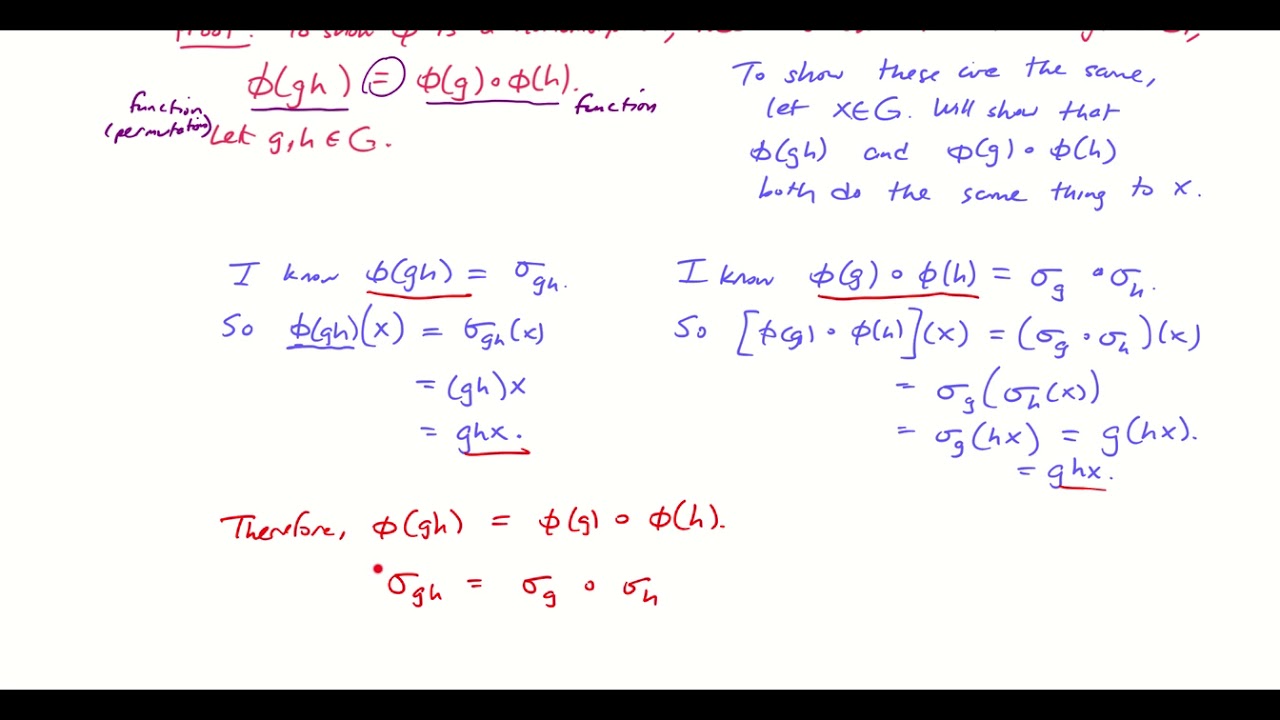 Proof: To show φ is a
φ(gh) = φ(g)∘φ(h).
function (permutation)
function
Let g,h ∈ G.
To show these are the same,
let x∈G. Will show that
φ(gh) and φ(g)∘φ(h)
both do the same thing to x.
I know φ(gh) = σ_gh.
So φ(gh)(x) = σ_gh(x)
= (gh)x
= ghx.
I know φ(g)∘φ(h) = σ_g∘σ_h.
So [φ(g)∘φ(h)](x) = (σ_g∘σ_h)(x)
= σ_g(σ_h(x))
= σ_g(hx) = g(hx).
= ghx.
Therefore, φ(gh) = φ(g)∘φ(h).
σ_gh = σ_g ∘ σ_h